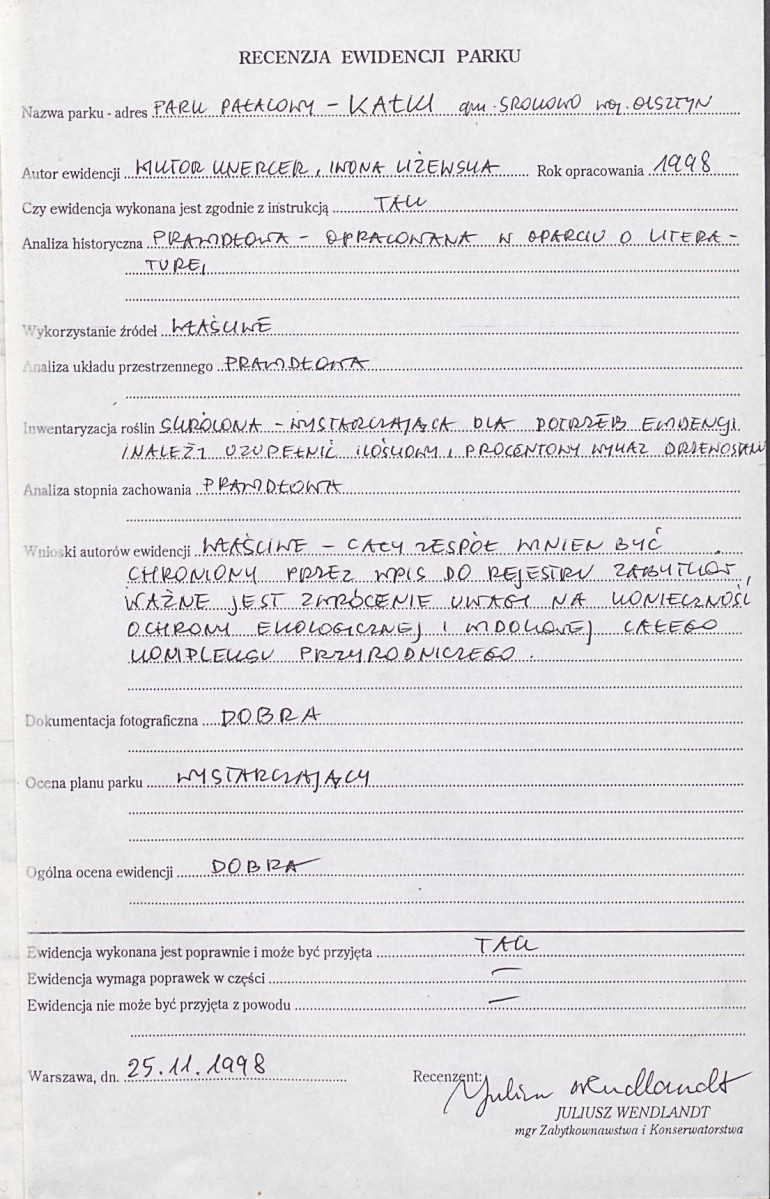 RECENZJA EWIDENCJI PARKU
Nazwa parku - adres PARK PAŁACOWY - KAŁKI gm. SROKOWO woj. OLSZTYN
Autor ewidencji WIKTOR KNERCER, IWONA LIŻEWSKA Rok opracowania 1998
Czy ewidencja wykonana jest zgodnie z instrukcją TAK
Analiza historyczna PRAWIDŁOWA - OPRACOWANA W OPARCIU O LITERA-
TURĘ,
Wykorzystanie źródeł WŁAŚCIWE
Analiza układu przestrzennego PRAWIDŁOWA
Inwentaryzacja roślin SKRÓCONA - WYSTARCZAJĄCA DLA POTRZEB EWIDENCJI.
/NALEŻY UZUPEŁNIĆ ILOŚCIOWY I PROCENTOWY WYKAZ DRZEWOSTANU
Analiza stopnia zachowania PRAWIDŁOWA
Wnioski autorów ewidencji WŁAŚCIWE - CAŁY ZESPÓŁ WINIEN BYĆ
CHRONIONY PRZEZ WPIS DO REJESTRU ZABYTKÓW,
WAŻNE JEST ZWRÓCENIE UWAGI NA KONIECZNOŚĆ
OCHRONY EKOLOGICZNEJ I WIDOKOWEJ CAŁEGO
KOMPLEKSU PRZYRODNICZEGO.
Dokumentacja fotograficzna DOBRA
Ocena planu parku WYSTARCZAJĄCY
Ogólna ocena ewidencji DOBRA
Ewidencja wykonana jest poprawnie i może być przyjęta TAK
Ewidencja wymaga poprawek w części —
Ewidencja nie może być przyjęta z powodu —
Warszawa, dn. 25.11.1998 Recenzent: Juliusz Wendlandt
JULIUSZ WENDLANDT
mgr Zabytkownawstwa i Konserwatorstwa